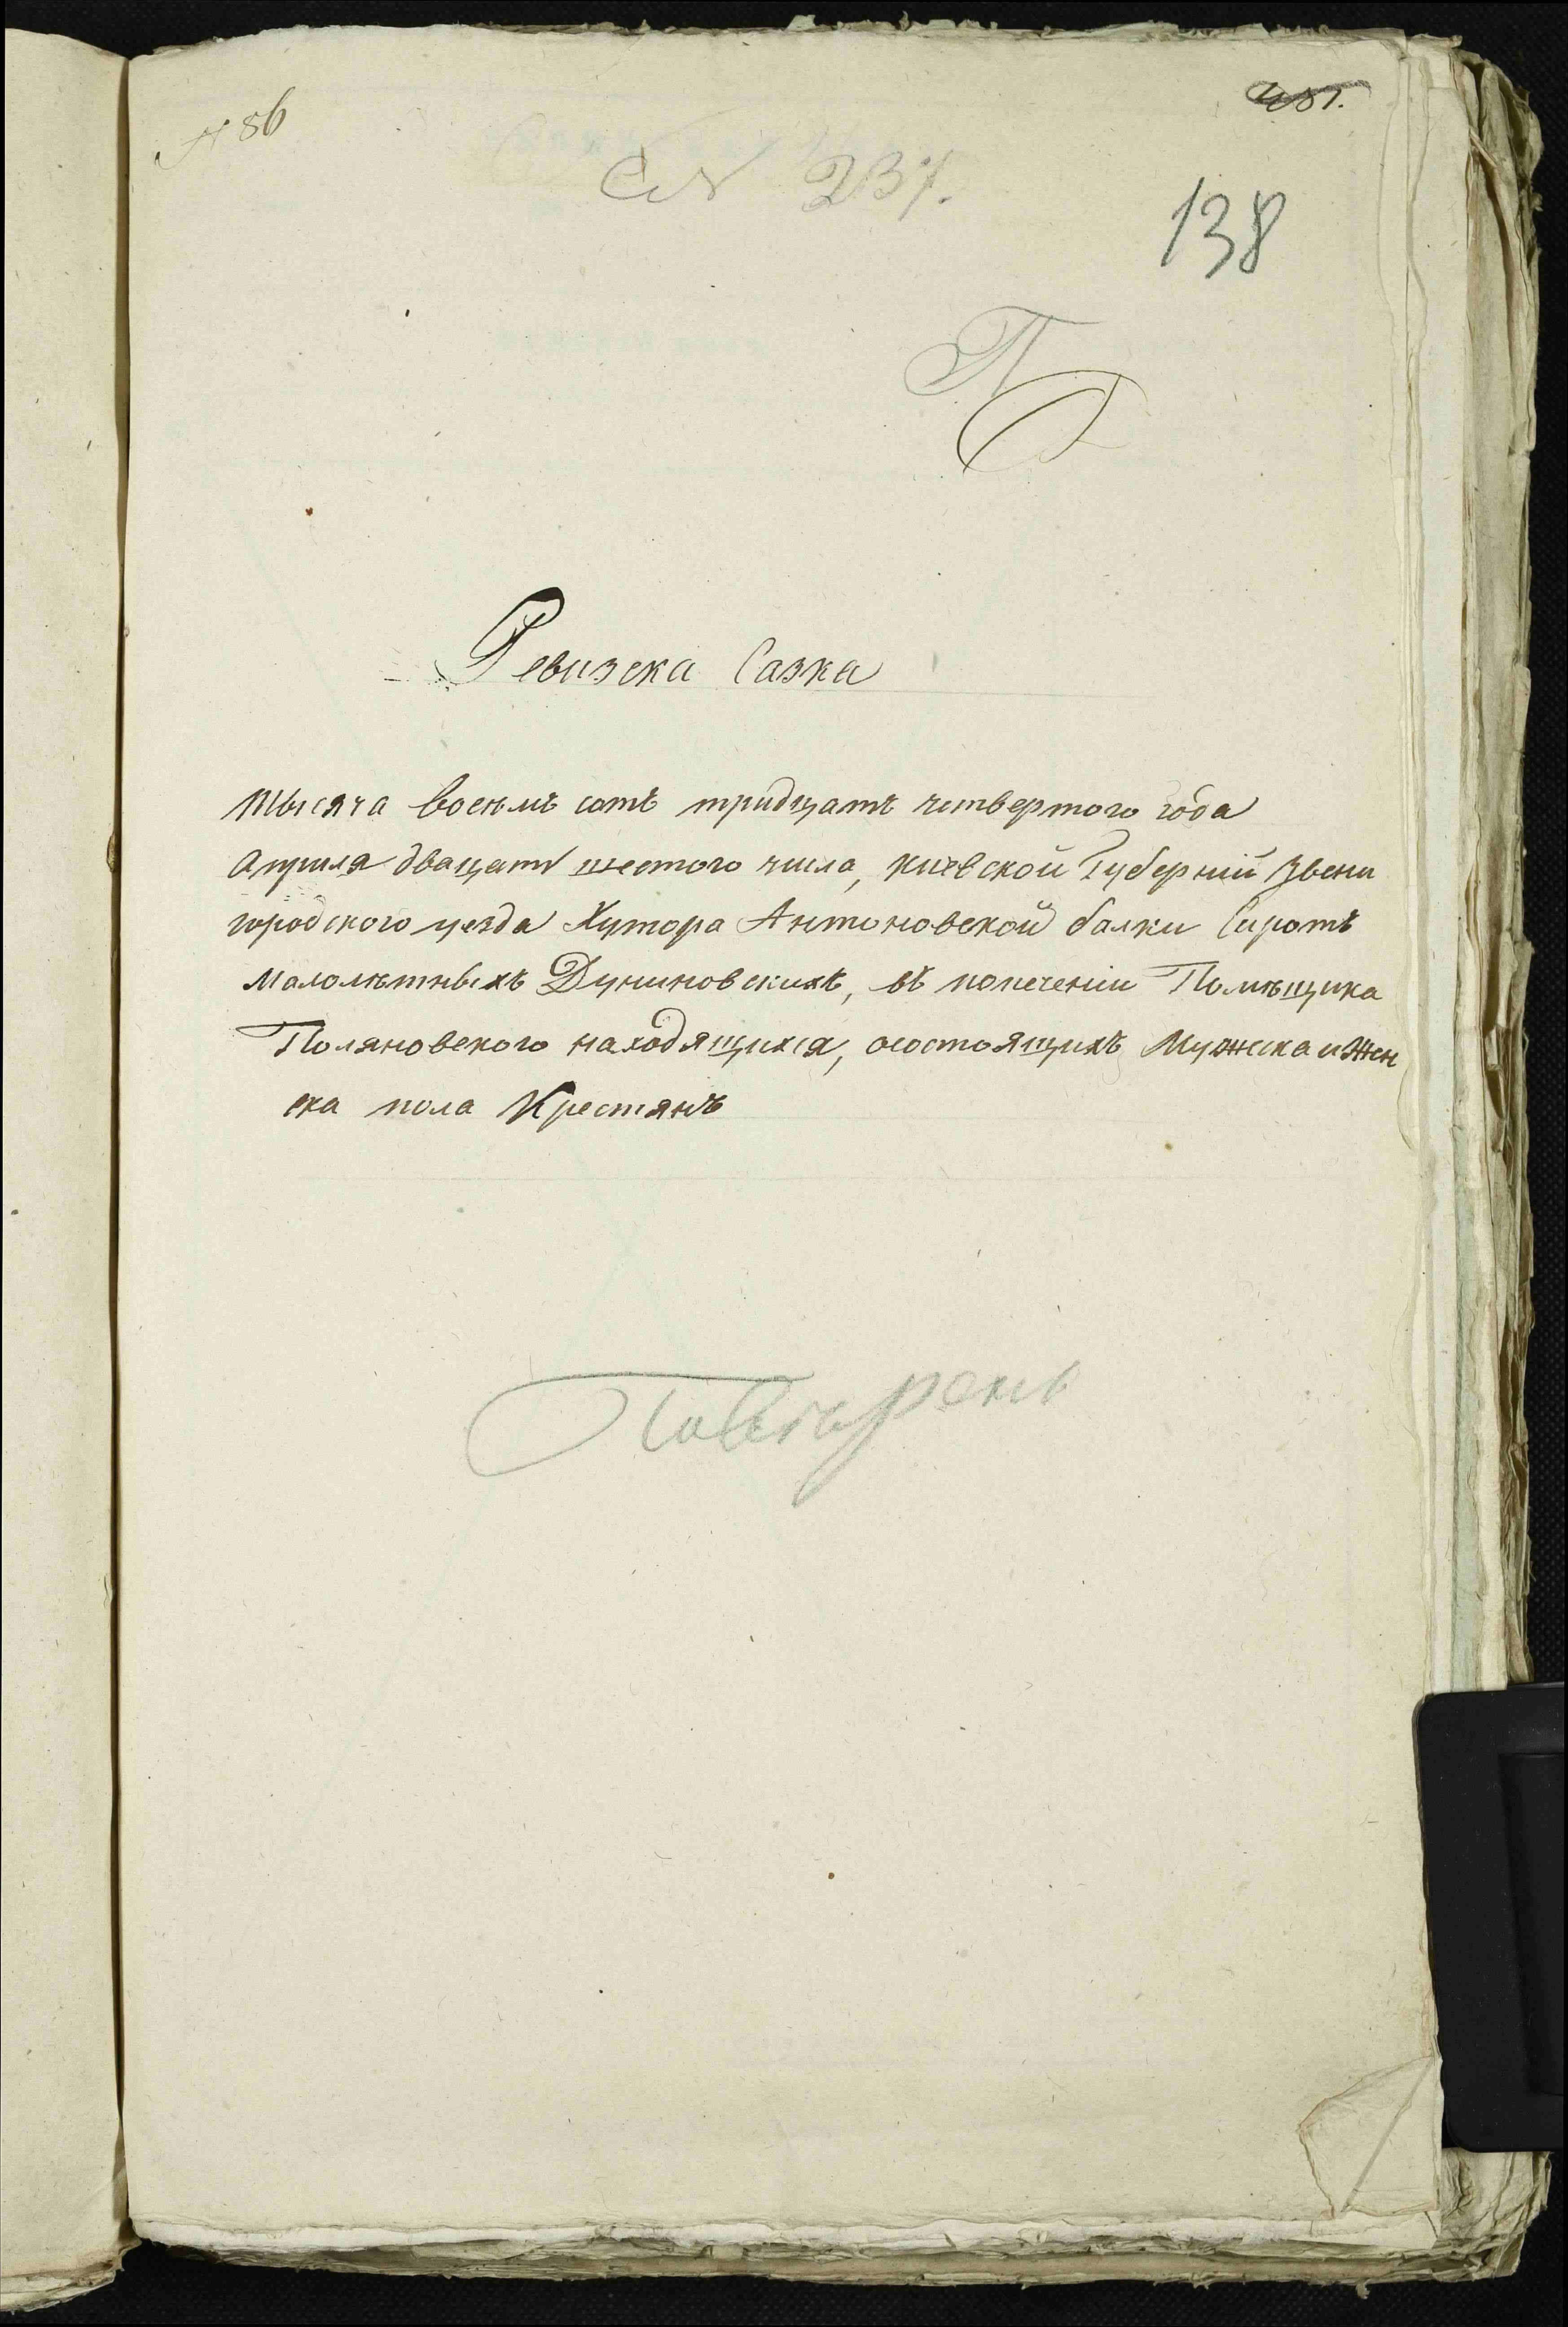 № 86
481.
№ 237.
138
П
Ревизска Сазка
тысяча восемъ сотъ тридцать четвертого года
Априля двацать шестого числа, киевской Губерніи Звени
городского уезда Хутора Антоновской балки Сиротъ
малолѣтныхъ Дуниновскихъ, въ попеченіи Помѣщика
Поляновского находящихся, осостоящихъ Мужска и Жен
ска пола Крестянъ